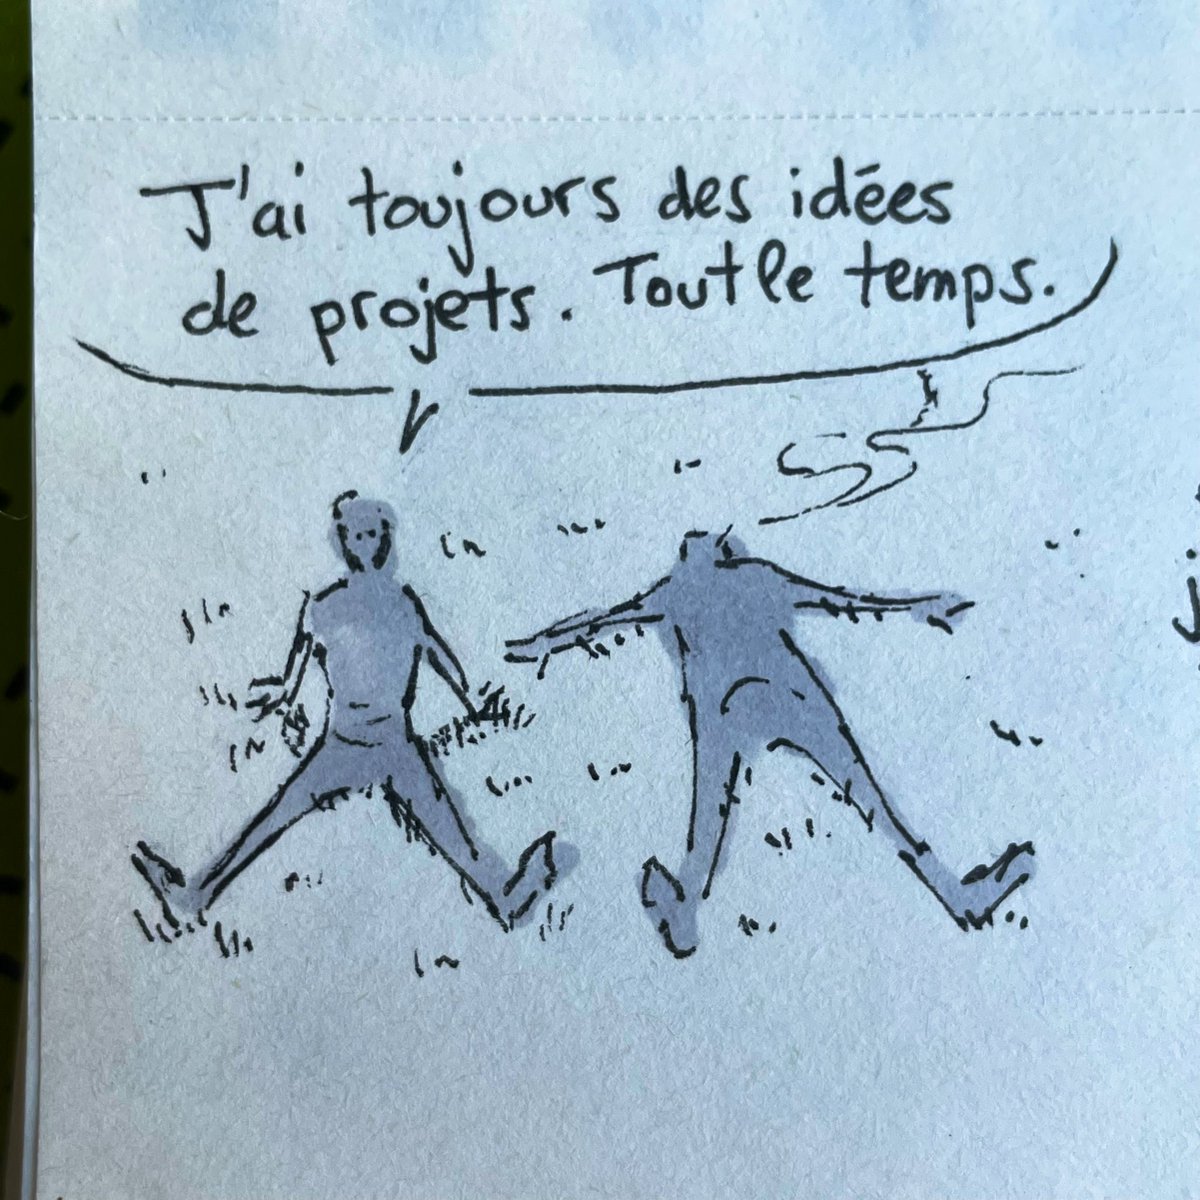 J'ai toujours des idées
de projets. Tout le temps.